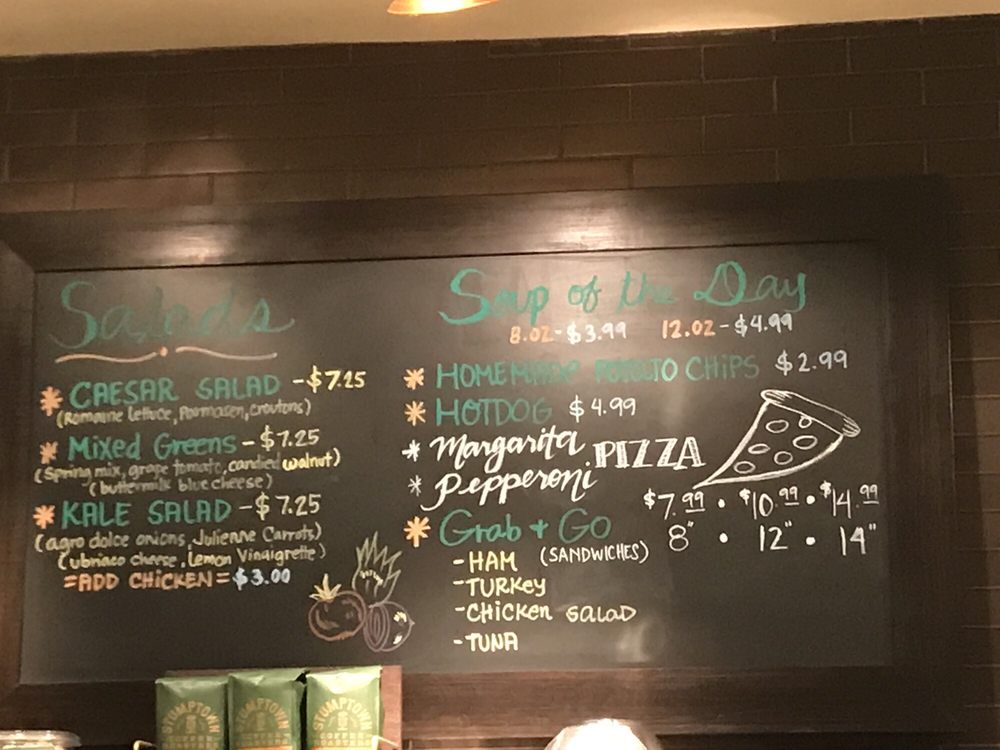 Salads
CAESAR SALAD - $7.25
(Romaine lettuce, Parmasen, croutons)
Mixed Greens - $7.25
(Spring mix, grape tomato, candied walnut)
(buttermilk blue cheese)
KALE SALAD - $7.25
(agro dolce onions, Julienne Carrots)
(ubriaco cheese, Lemon Vinaigrette)
=ADD CHICKEN= $3.00
Soup of the Day
8.OZ - $3.99 12.OZ - $4.99
HOMEMADE POTATO CHIPS $2.99
HOTDOG $4.99
Margarita
Pepperoni
PIZZA
$7.99 • $10.99 • $14.99
8" • 12" • 14"
Grab + Go
(SANDWICHES)
- HAM
- TURKEY
- CHICKEN SALAD
- TUNA
STUMPTOWN
COFFEE ROASTERS
STUMPTOWN
COFFEE ROASTERS
STUMPTOWN
COFFEE ROASTERS